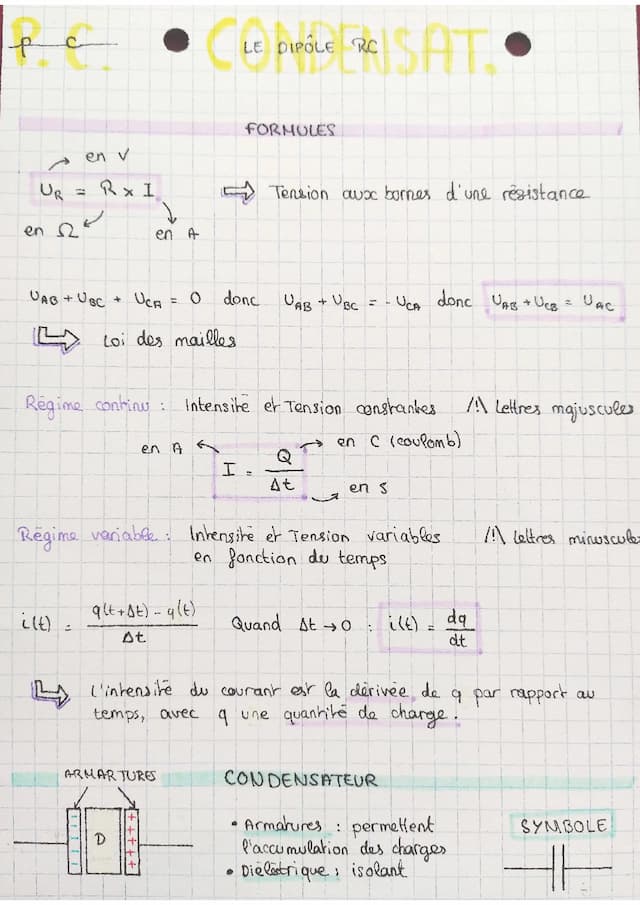 P.C. CONDENSAT.
P C LE DIPÔLE RC
FORMULES
en V
U_R = R x I ⇨ Tension aux bornes d'une résistance
en Ω en A
U_AB + U_BC + U_CA = 0 donc U_AB + U_BC = - U_CA donc U_AB + U_CB = U_AC
Loi des mailles
Régime continu : Intensité et Tension constantes /!\ Lettres majuscules
en A I = Q/Δt en C (coulomb)
en s
Régime variable : Intensité et Tension variables /!\ lettres minuscule
en fonction du temps
i(t) = (q(t+Δt) - q(t))/Δt Quand Δt → 0 : i(t) = dq/dt
L'intensité du courant est la dérivée de q par rapport au
temps, avec q une quantité de charge.
ARMARTURES CONDENSATEUR
D
- - - - - + + + + +
• Armatures : permettent
l'accumulation des charges
• Diélectrique : isolant
SYMBOLE